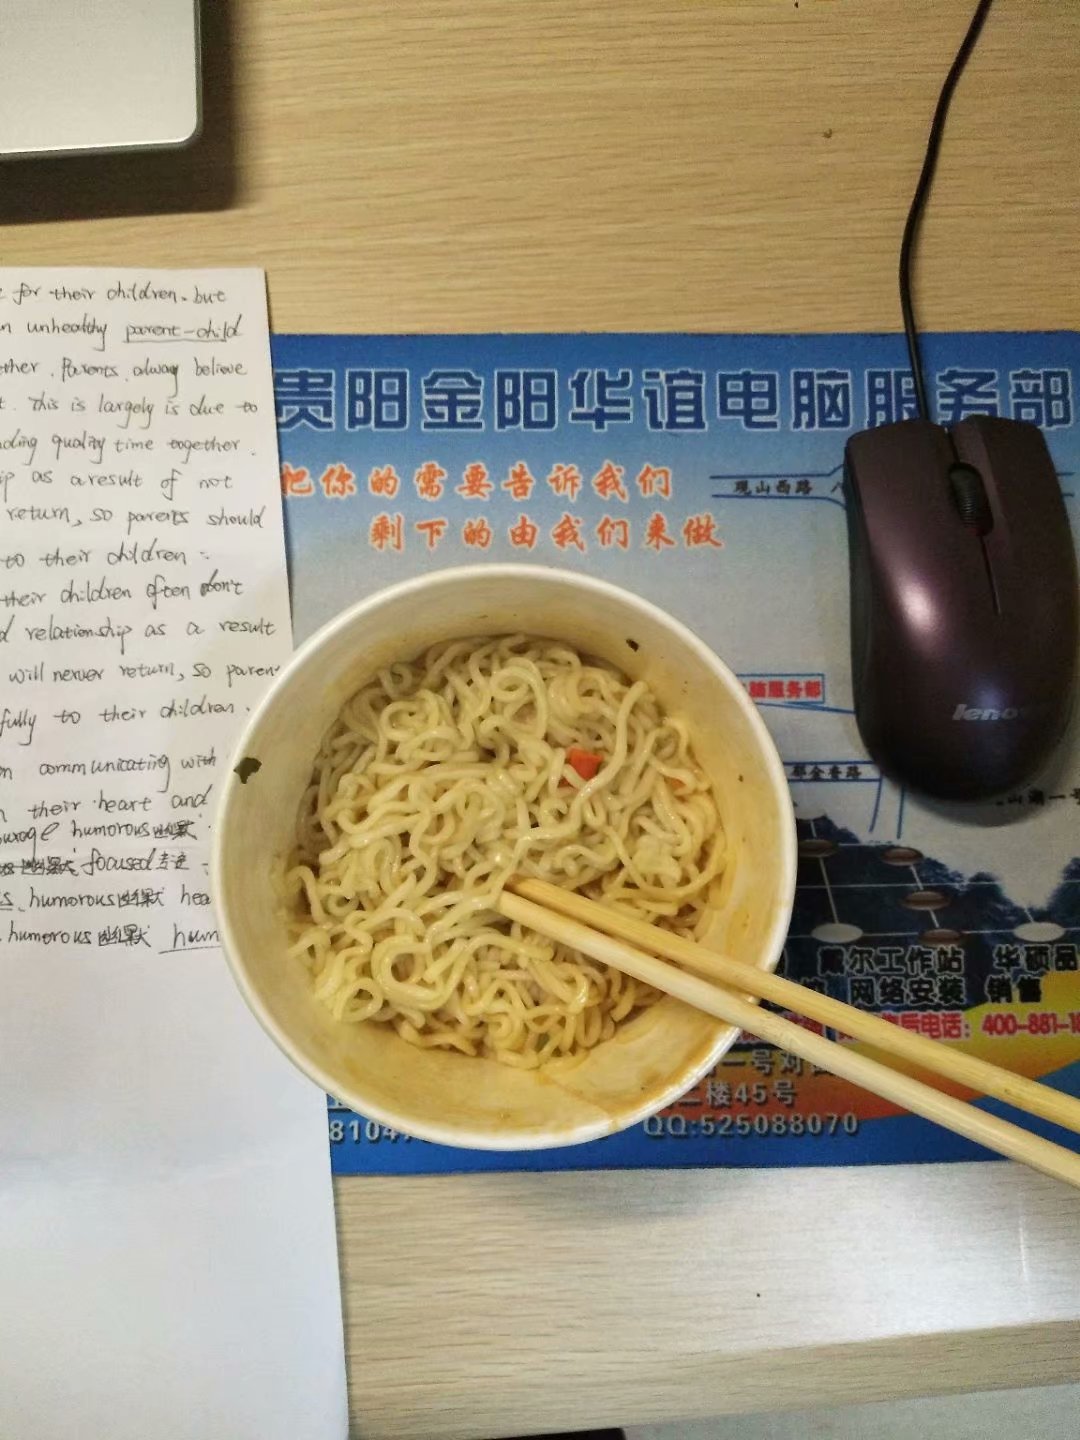 for their children. but
unhealthy parent-child
Parents. alway believe
This is largely is due to
quality time together.
as a result of not
return, so parents should
to their children.
their children often don't
relationship as a result
will nerver return, so paren
fully to their children.
communicating with
their heart and
humorous幽默
幽默 focused专注
humorous幽默 hea
humorous幽默 hum
贵阳金阳华谊电脑服务部
把你的需要告诉我们
剩下的由我们来做
观山西路 八
脑服务部
部金香路
lenovo
戴尔工作站 华硕品
网络安装 销售
售后电话：400-881-1
一号对
二楼45号
8104
QQ:525088070